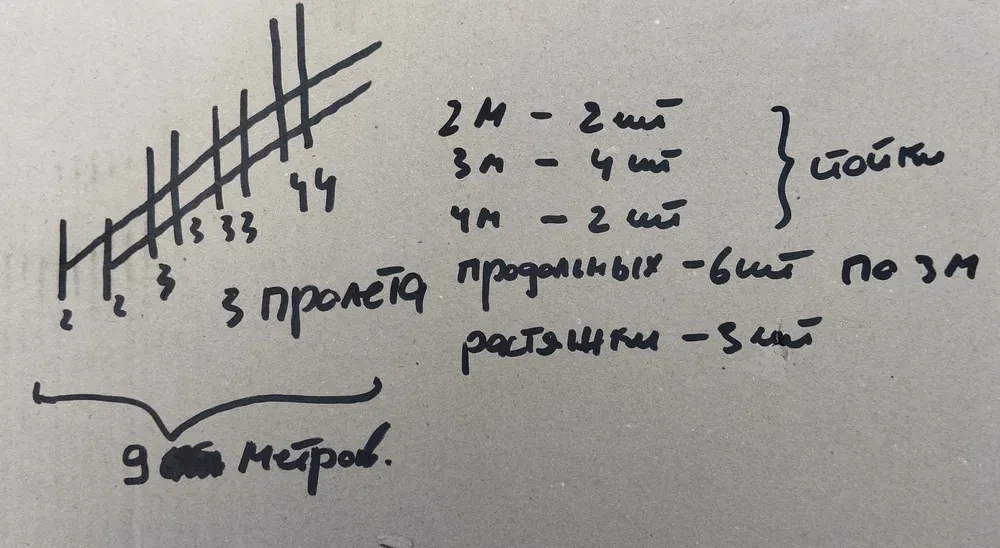 2м - 2шт
3м - 4 шт
4м - 2 шт
стойки
продольных - 6шт по 3м
растяжки - 3шт
2 2 3 3 3 3 4 4
3 пролёта
9 метров.